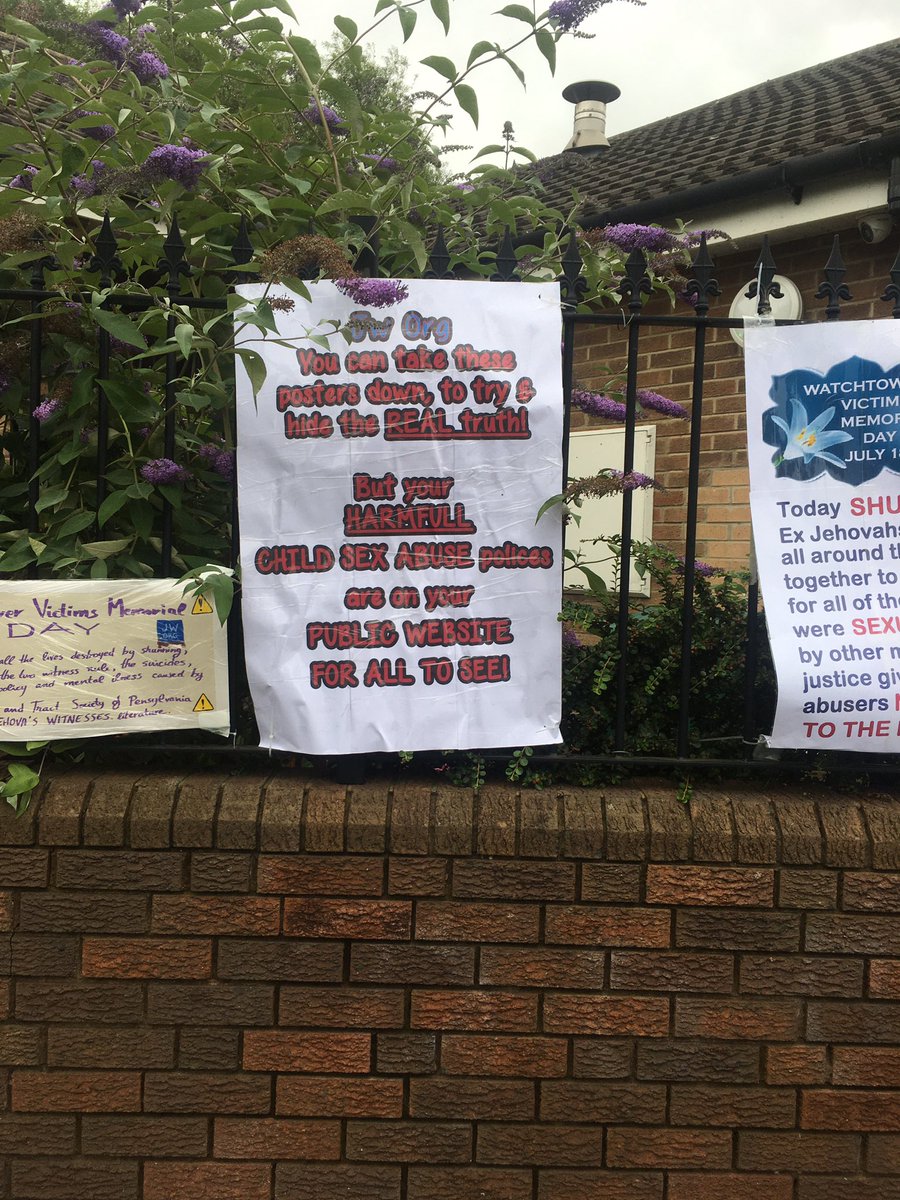 Jw Org
You can take these
posters down, to try &
hide the REAL truth!
But your
HARMFULL
CHILD SEX ABUSE polices
are on your
PUBLIC WEBSITE
FOR ALL TO SEE!
Victims Memorial
DAY
JW
.ORG
all the lives destroyed by shunning,
the two witness rule, the suicides,
policy and mental illness caused by
and Tract Society of Pennsylvania
WITNESSES. literature.
WATCHTOW
VICTIM
MEMOR
DAY
JULY 18
Today SHU
Ex Jehovahs
all around th
together to
for all of the
were SEXU
by other m
justice giv
abusers
TO THE